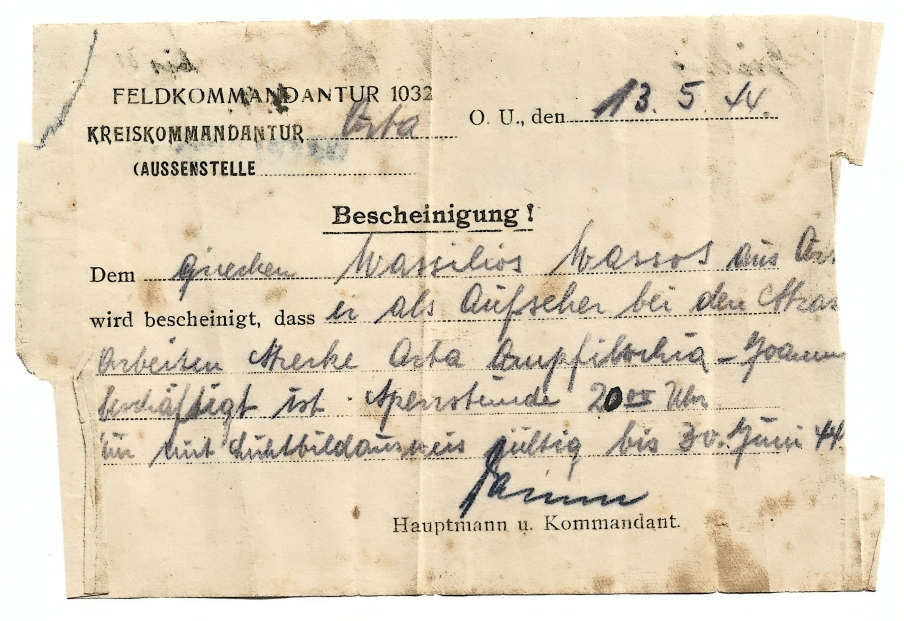 FELDKOMMANDANTUR 1032
O. U., den 13. 5. 44.
KREISKOMMANDANTUR Arta
(AUSSENSTELLE
Bescheinigung!
Dem griechen Wassilios Wassos aus
wird bescheinigt, dass er als Aufseher bei den Stras
Arbeiten Strecke Arta Ampfilochia - Joannin
beschäftigt ist. Sperrstunde 20 00 Uhr
Nur mit Lichtbildausweis gültig bis 30. Juni 44.
Hauptmann u. Kommandant.